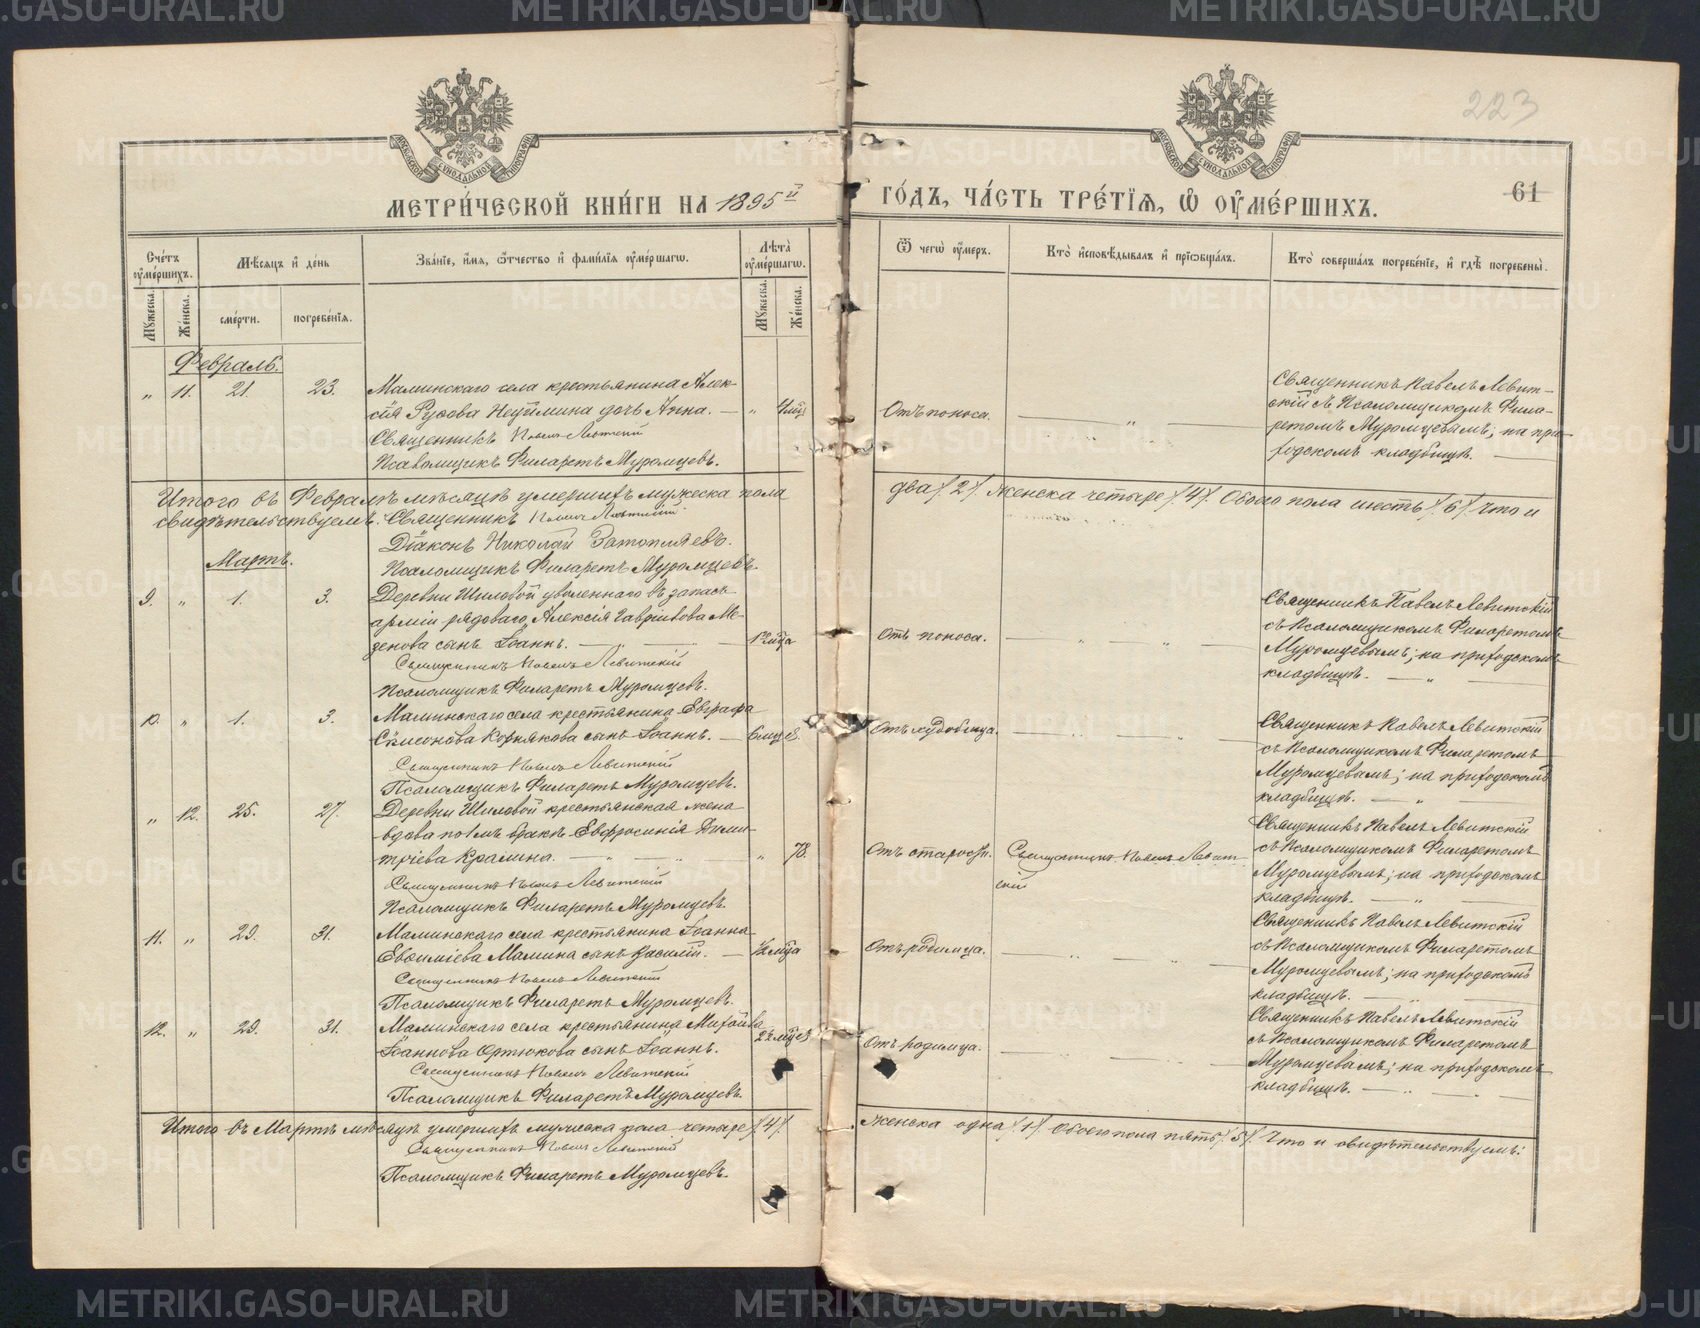 METRIKI.GASO-URAL.RU
223
61
МОСКОВСКОЙ СѴНОДАЛЬНОЙ ТИПОГРАФІИ
МЕТРИ́ЧЕСКОЙ КНИ́ГИ НА 1895й ГО́ДЪ, ЧА́СТЬ ТРЕ́ТІѦ, Ѡ҆ ОУ҆МЕ́РШИХЪ.
Сче́тъ оу҆ме́ршихъ.
Мѣ́сѧцъ и҆ де́нь
Зва́нїе, и҆́мѧ, ѻ҆́тчество и҆ фами́лїѧ оу҆ме́ршагѡ.
Лѣ́та оу҆ме́ршагѡ.
Ѿ чегѡ̀ оу҆́меръ.
Кто̀ и҆сповѣ́дывалъ и҆ прїѡбща́лъ.
Кто̀ соверша́лъ погребе́нїе, и҆ гдѣ̀ погребены̀.
Мꙋ́жеска.
Же́нска.
сме́рти.
погребе́нїѧ.
Мꙋ́жеска.
Же́нска.
Февраль.
„ 11. 21. 23. Маминскаго села крестьянина Алек-
сія Русова Неуймина дочь Анна. — „ Отъ поноса. — „ —
Священникъ Павелъ Левитскій
Псаломщикъ Филаретъ Муромцевъ.
Священникъ Павелъ Левит-
скій съ Псаломщикомъ Фила-
ретомъ Муромцевымъ; на при-
ходскомъ кладбищѣ. —
Итого въ Февралѣ мѣсяцѣ умершихъ мужеска пола два /2/. Женска четыре /4/. Обоего пола шесть /6/. Что и
свидѣтельствуемъ: Священникъ Павелъ Левитскій
Діаконъ Николай Затопляевъ.
Псаломщикъ Филаретъ Муромцевъ.
Мартъ.
9. „ 1. 3. Деревни Шиловой уволеннаго въ запасъ
арміи рядоваго Алексія Гаврилова Ме-
денова сынъ Іоаннъ. — „ — Отъ поноса. — „ —
Священникъ Павелъ Левитскій
Псаломщикъ Филаретъ Муромцевъ.
Священникъ Павелъ Левитскій
съ Псаломщикомъ Филаретомъ
Муромцевымъ; на приходскомъ
кладбищѣ. — „ —
10. „ 1. 3. Маминскаго села крестьянина Евграфа
Корнякова сынъ Іоаннъ. — 6 мцев. — „ —
Священникъ Павелъ Левитскій
Псаломщикъ Филаретъ Муромцевъ.
Священникъ Павелъ Левитскій
съ Псаломщикомъ Филаретомъ
Муромцевымъ; на приходскомъ
кладбищѣ. — „ —
„ 12. 25. 27. Деревни Шиловой крестьянская жена
вдова по 1мъ бракѣ Евфросинія Дими-
тріева Кралина. — „ — „ 78. Отъ старости. Священникъ Павелъ Левит-
скій
Священникъ Павелъ Левитскій
Псаломщикъ Филаретъ Муромцевъ.
Священникъ Павелъ Левитскій
съ Псаломщикомъ Филаретомъ
Муромцевымъ; на приходскомъ
кладбищѣ. — „ —
11. „ 29. 31. Маминскаго села крестьянина Іоанна
Евѳиміева Мамина сынъ Василій. — ½ мца Отъ родимца. — „ —
Священникъ Павелъ Левитскій
Псаломщикъ Филаретъ Муромцевъ.
Священникъ Павелъ Левитскій
съ Псаломщикомъ Филаретомъ
Муромцевымъ; на приходскомъ
кладбищѣ. —
12. „ 29. 31. Маминскаго села крестьянина Михаила
Іоаннова Ортюкова сынъ Іоаннъ. Отъ родимца. — „ —
Священникъ Павелъ Левитскій
Псаломщикъ Филаретъ Муромцевъ.
Священникъ Павелъ Левитскій
съ Псаломщикомъ Филаретомъ
Муромцевымъ; на приходскомъ
кладбищѣ. —
Итого въ Мартѣ мѣсяцѣ умершихъ мужеска пола четыре /4/. Женска одна /1/. Обоего пола пять /5/. Что и свидѣтельствуемъ:
Священникъ Павелъ Левитскій
Псаломщикъ Филаретъ Муромцевъ.